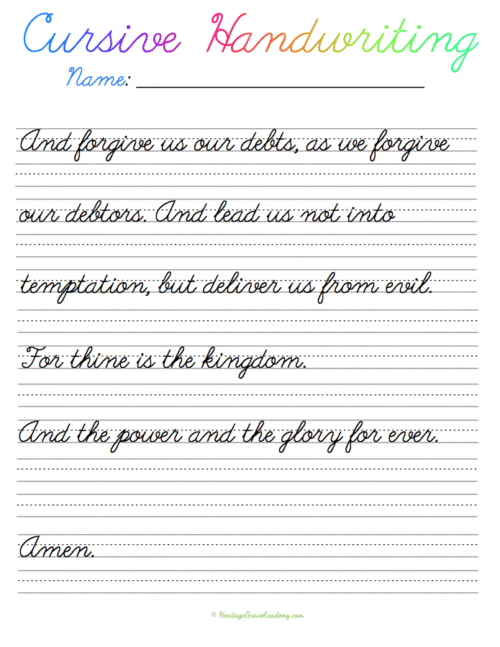 Cursive Handwriting
Name:
And forgive us our debts, as we forgive
our debtors. And lead us not into
temptation, but deliver us from evil.
For thine is the kingdom.
And the power and the glory for ever.
Amen.
© HeritageGroveAcademy.com